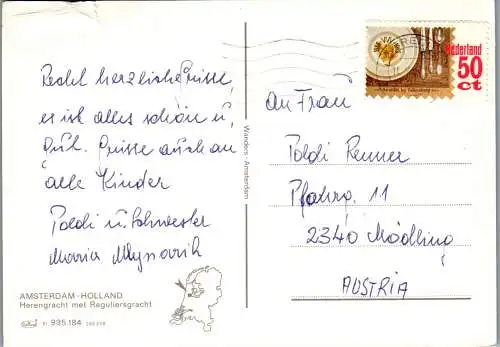 Recht herzliche Grüsse,
es ist alles schön u.
gut. Grüsse auch an
alle Kinder
Poldi u. Schwester
Maria
AMSTERDAM - HOLLAND
Herengracht met Reguliersgracht
11 935.184
Wanders - Amsterdam
Nederland
50
ct
An Frau
Poldi Renner
11
2340 Mödling
AUSTRIA